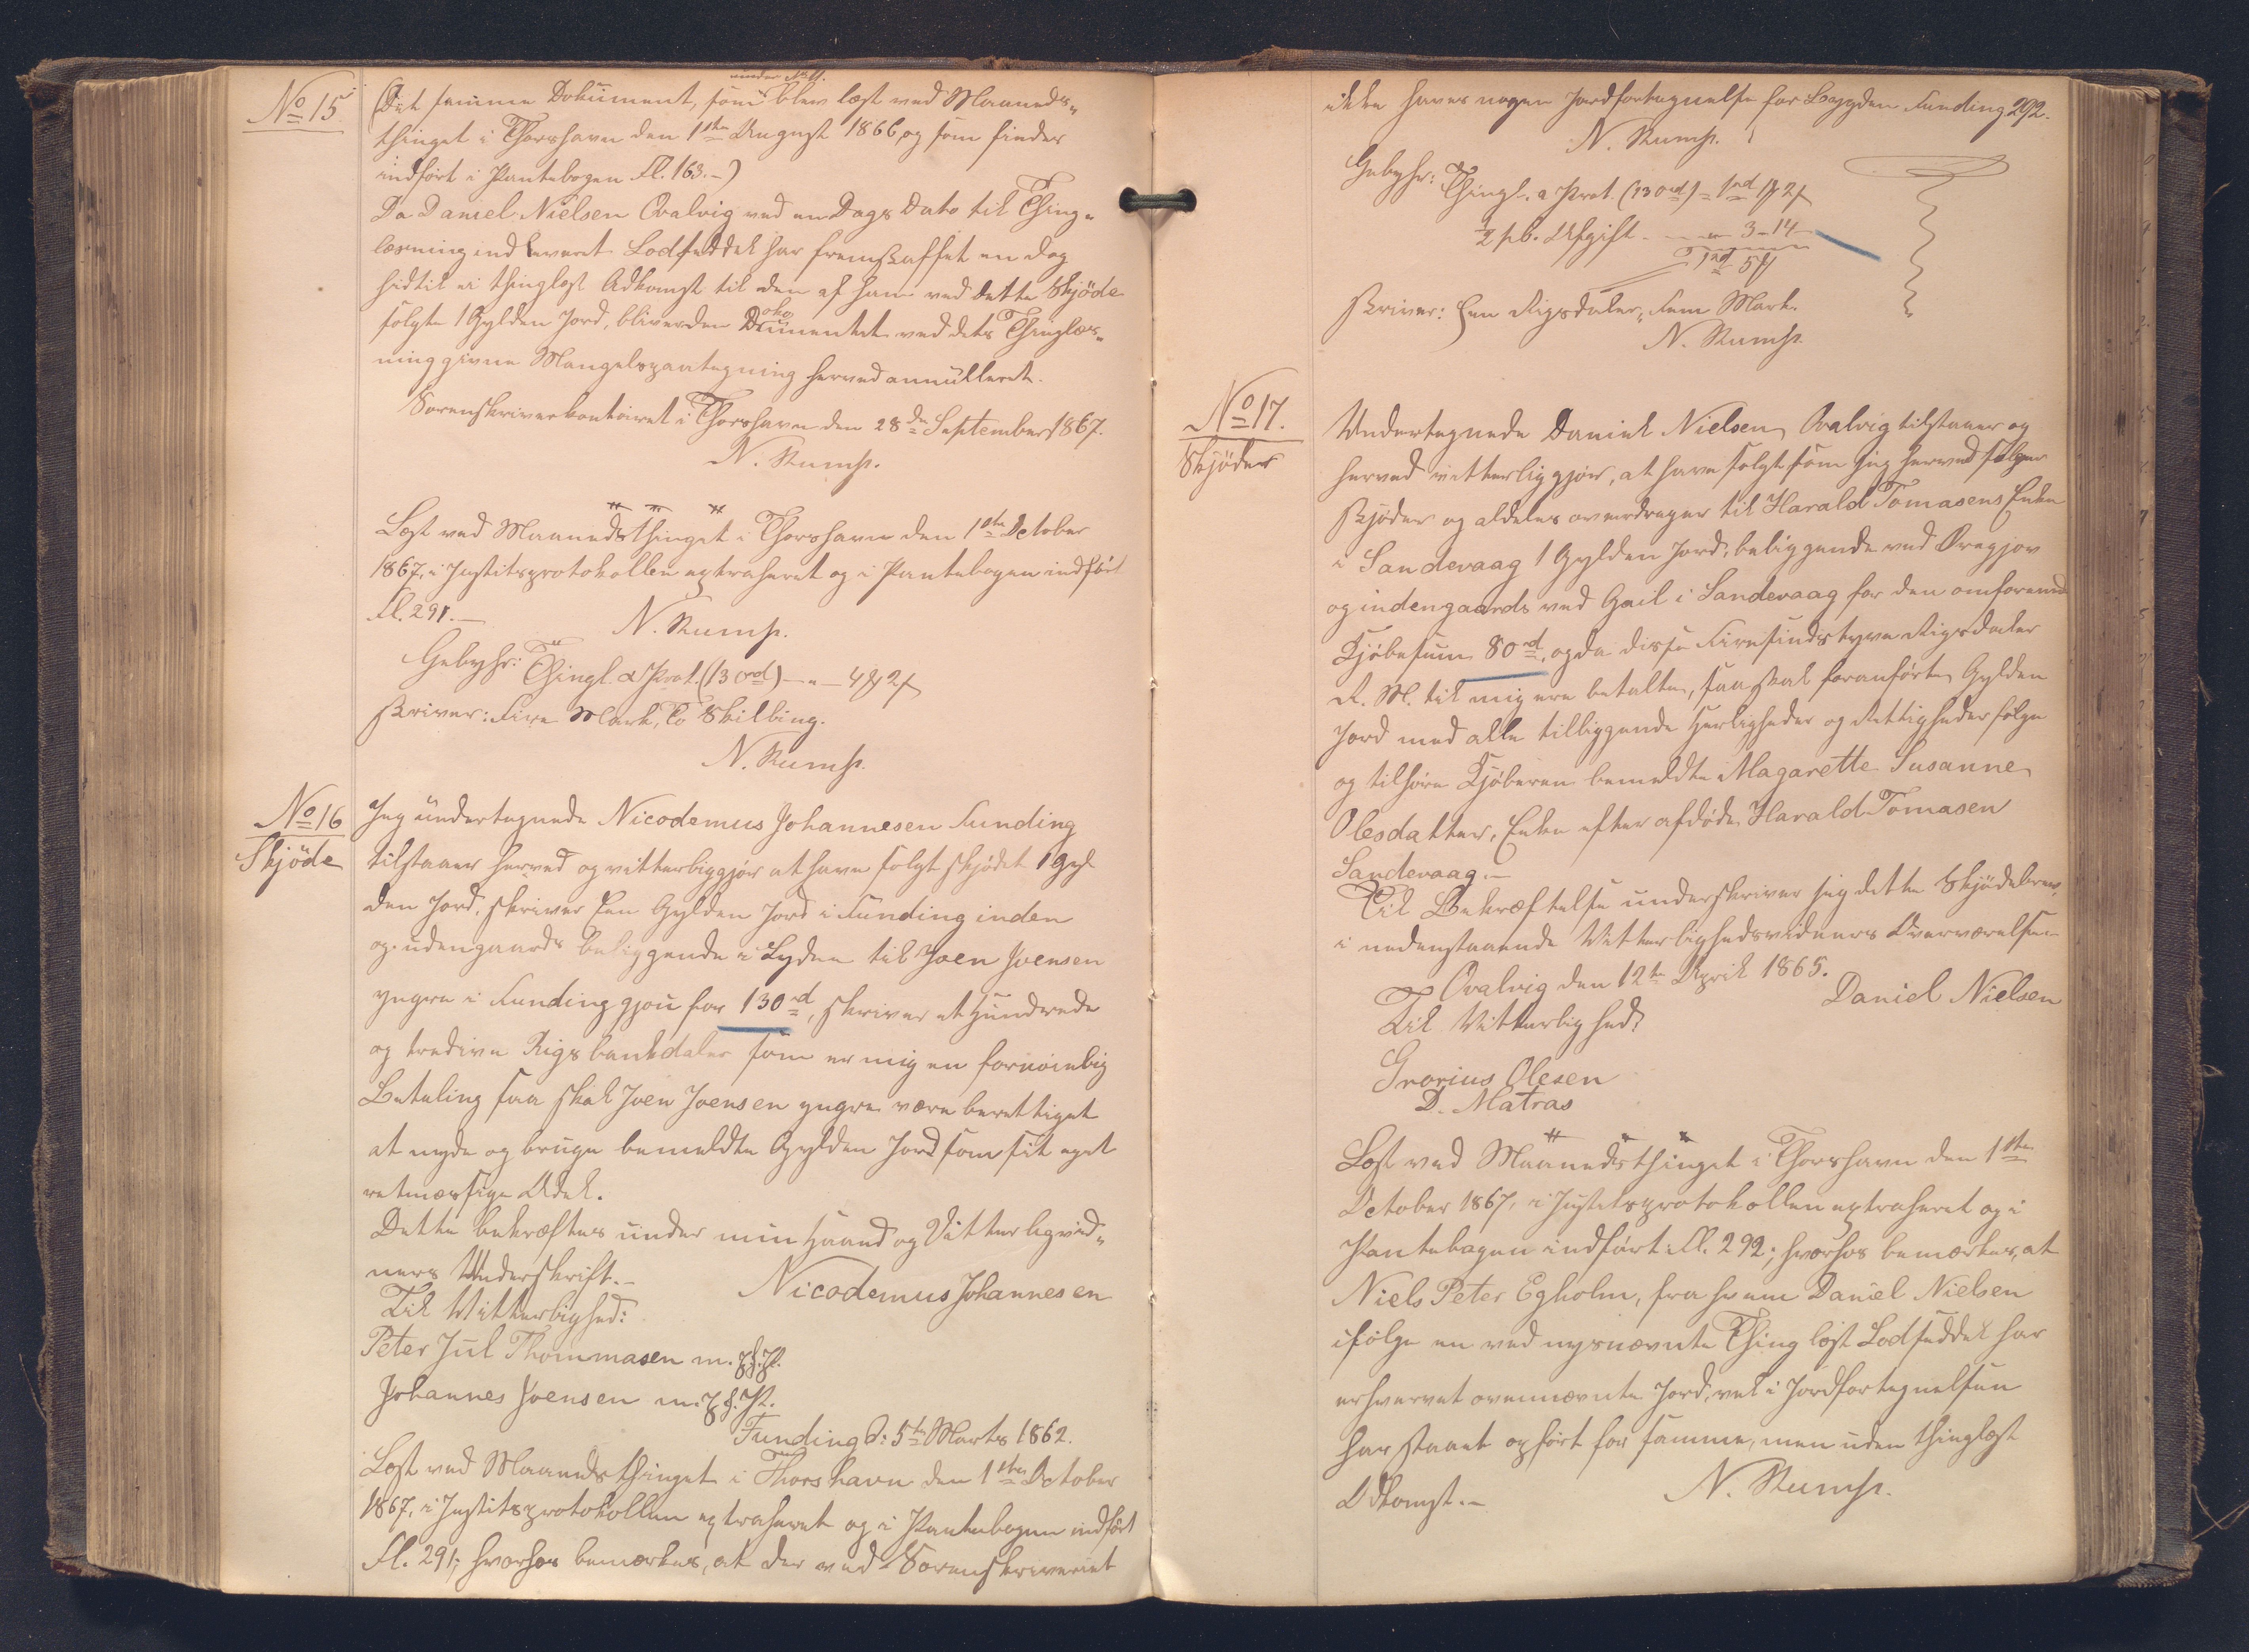 No 15.
under No 11.
(Det samme Dokument, som blev læst ved Maaneds-
thinget i Thorshavn den 1ste August 1866, og som findes
indført i Pantebogen Fl. 163. -)
Da Daniel Nielsen Qvalvig ved en Dags Dato til Thing-
læsning indleveret Lodseddel har fremskaffet en dog
hidtil ei thinglæst Adkomst til den af ham ved dette Skjöde
solgte 1 Gylden Jord, bliver den Documentet ved dets Thinglæs-
oku
ning givne Mangelspaategning herved annulleret.
Sorenskriverkontoiret i Thorshavn den 28de September 1867.
N. Rump.
Læst ved Maanedsthinget i Thorshavn den 1ste October
1867, i Justitsprotokollen extraheret og i Pantebogen indført
Fl. 291. -
N. Rump.
Gebyhr: Thingl. a Prot. (130 rd) - " - 4 ꟗ 2 ꞵ
skriver: Fire Mark, To Skilling.
N. Rump.
No 16
Skjöde
Jeg undertegnede Nicodemus Johannesen Funding
tilstaaer herved og vitterliggjör at have solgt skjödet 1 Gyl
den Jord, skriver Een Gylden Jord i Funding inden
og udengaards beliggende i Lyden til Joen Joensen
yngre i Funding gjou for 130 rd, skriver et Hundrede
og tredive Rigsbankdaler som er mig en fornöielig
Betaling saa skal Joen Joensen yngre være berettiget
at nyde og bruge bemeldte Gylden Jord som sit eget
retmæssige Odel.
Dette bekræftes under min Haand og Vitterligvid-
ners Underskrift. -
Nicodemus Johannesen
Til Vitterlighed:
Peter Jul Thommasen m. f. P.
Johannes Joensen m. f. P.
Funding d: 5te Marts 1862.
Læst ved Maanedsthinget i Thorshavn den 1ste October
1867, i Justitsprotokollen extraheret og i Pantebogen indført
Fl. 291; hvorhos bemærkes, at der ved Sorenskriveriet
ikke haves nogen Jordfortegnelse for Bygden Funding. 292.
N. Rump.
Gebyhr: Thingl. a Prot. (130 rd) = 1 rd 1 ꟗ 2 ꞵ
½ pC. Afgift - " - 3 - 14
1 rd 5 ꟗ
skriver: Een Rigsdaler, Fem Mark.
N. Rump.
No 17.
Skjöder
Undertegnede Daniel Nielsen Qvalvig tilstaaer og
herved vitterliggjör, at have solgt som jeg herved sælger
skjöder og aldeles overdrager til Harald Tomasens Enke
i Sandevaag 1 Gylden Jord, beliggende ved Öregjov
og indengaards ved Gail i Sandevaag for den omforenede
Kjöbesum 80 rd, og da disse Firesindstyve Rigsdaler
R. M. til mig ere betalte, saa skal foranførte Gylden
Jord med alle tilliggende Herligheder og Rettigheder følge
og tilhöre Kjöberen bemeldte Magarette Susanne
Olesdatter, Enke efter afdöde Harald Tomasen
Sandevaag. -
Til Bekræftelse underskriver jeg dette Skjödebrev,
i nedenstaaende Vitterlighedsvidners Overværelse. -
Qvalvig den 12te April 1865.
Daniel Nielsen
Til Vitterlighed:
Grorius Olesen
D. Matras
Læst ved Maanedsthinget i Thorshavn den 1ste
October 1867, i Justitsprotokollen extraheret og i
Pantebogen indført Fl. 292; hvorhos bemærkes, at
Niels Peter Egholm, fra hvem Daniel Nielsen
ifølge en ved nysnævnte Thing læst Lodseddel har
erhvervet ovennævnte Jord, vel i Jordfortegnelsen
har staaet opført for samme, men uden thinglæst
Adkomst. -
N. Rump.